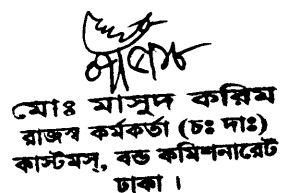 মোঃ মাসুদ করিম
রাজস্ব কর্মকর্তা (চঃ দাঃ)
কাস্টমস্, বন্ড কমিশনারেট
ঢাকা ।